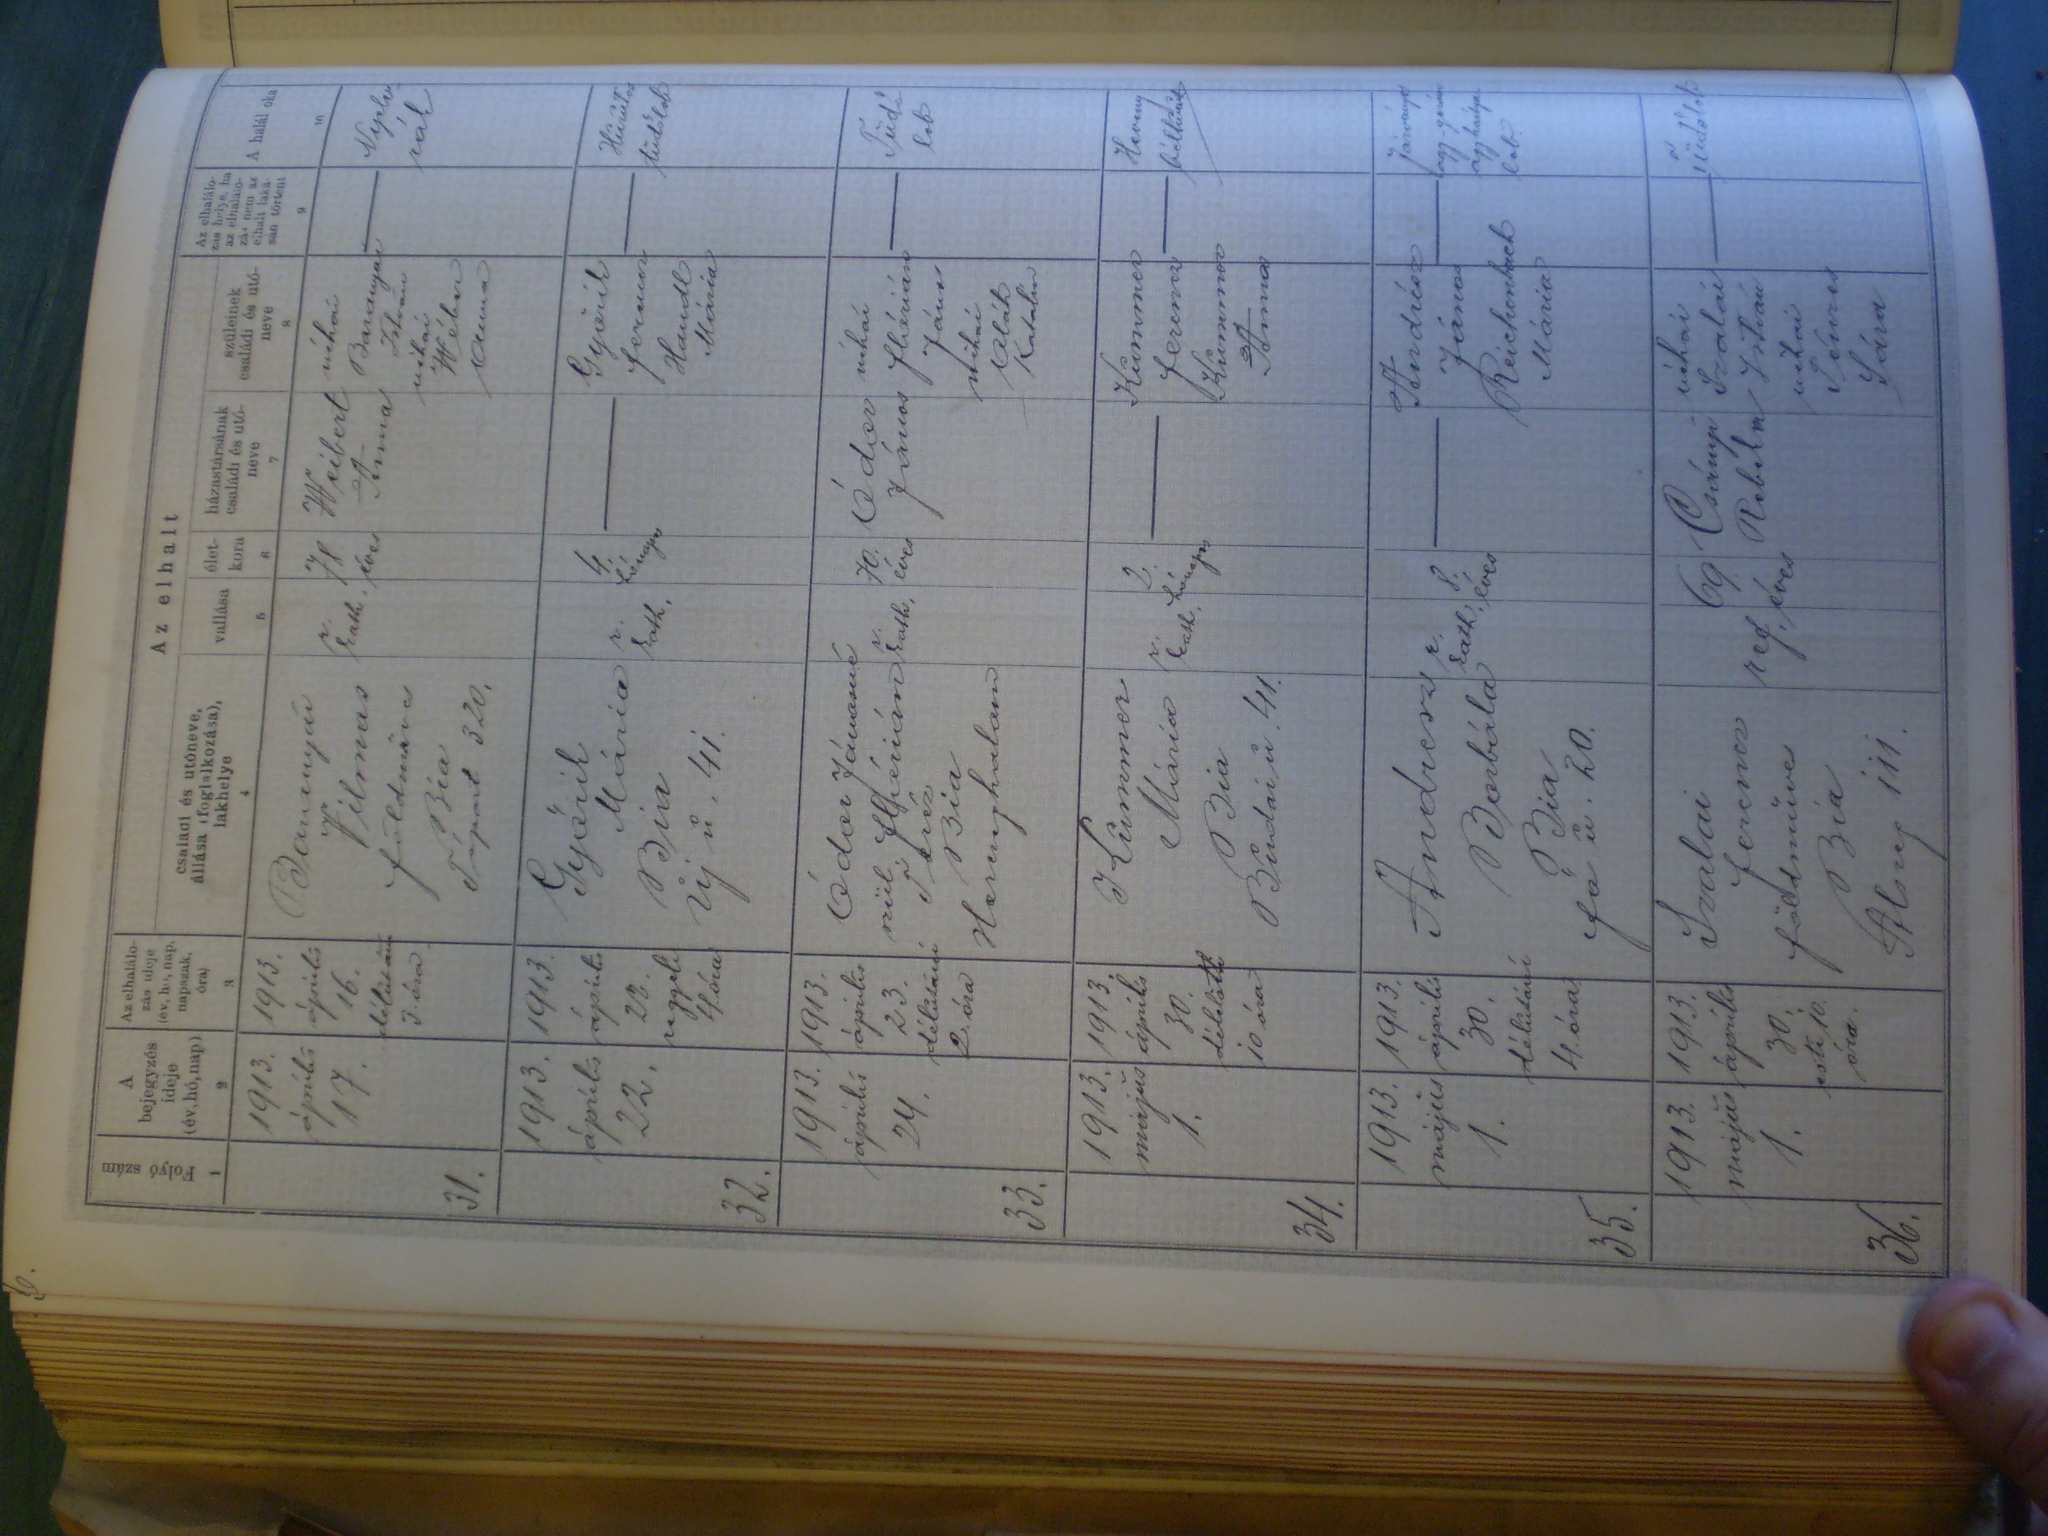 6.
Az elhalt
Folyó szám
A bejegyzés ideje (év, hó, nap)
Az elhalálo-
zás ideje
(év, hó, nap,
napszak,
óra)
családi és utóneve,
állása (foglalkozása),
lakhelye
vallása
élet-
kora
házastársának
családi és utó-
neve
szüleinek
családi és utó-
neve
Az elhalálo-
zás helye, ha
az elhalálo-
zás nem az
elhalt laká-
sán történt
A halál oka
1
2
3
4
5
6
7
8
9
10
31.
1913.
április
17.
1913.
április
16.
délután
3 óra
Baranyai
Vilmos
földműves
Bia
320.
r.
kath.
78
éves
Weibert
Anna
néhai
Baranyai
István
néhai
Wéber
Anna
32.
1913.
április
22.
1913.
április
22.
reggeli
4 óra
Győrik
Mária
Bia
Új u. 41.
r.
kath.
4.
hónapos
Győrik
Ferencz
Handl
Mária
Hurutos
tüdőlob
33.
1913.
április
24.
1913.
április
23.
délutáni
2. óra
Ódor Jánosné
szül. Flórián
Teréz
Bia
Herczeghalom
r.
kath.
70.
éves
Ódor
János
néhai
Flórián
János
néhai
Katalin
Tüdő
lob
34.
1913.
május
1.
1913.
április
30.
délelőtt
10 óra
Krummer
Mária
Bia
Budai u. 41.
r.
kath.
2.
hónapos
Krummer
Ferencz
Krummer
Anna
Heveny
bélhurut
35.
1913.
május
1.
1913.
április
30.
délutáni
4. óra
Andresz
Borbála
Bia
Fő u. 20.
r.
kath.
8.
éves
Andrész
János
Reichenbach
Mária
Járványos
agy-gerincz
agyhártya
lob.
36.
1913.
május
1.
1913.
április
30.
esti 10.
óra.
Szalai
Ferencz
földműves
Bia
111.
ref.
69.
éves
Csányi
Rebeka
néhai
Szalai
István
néhai
Sára
Tüdőlob